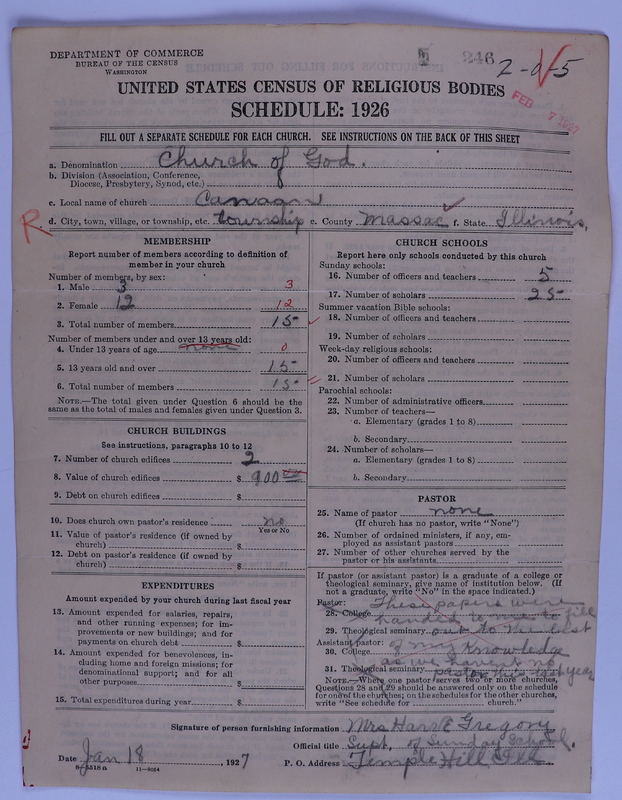 DEPARTMENT OF COMMERCE
BUREAU OF THE CENSUS
WASHINGTON
246
2-0-5
FEB 7 1927
UNITED STATES CENSUS OF RELIGIOUS BODIES
SCHEDULE: 1926
FILL OUT A SEPARATE SCHEDULE FOR EACH CHURCH. SEE INSTRUCTIONS ON THE BACK OF THIS SHEET
a. Denomination Church of God.
b. Division (Association, Conference,
Diocese, Presbytery, Synod, etc.)
c. Local name of church
R. d. City, town, village, or township, etc. township e. County Massac f. State Illinois.
MEMBERSHIP
Report number of members according to definition of
member in your church
Number of members, by sex:
1. Male 3 3
2. Female 12 12
3. Total number of members 15
Number of members under and over 13 years old:
4. Under 13 years of age none 0
5. 13 years old and over 15
6. Total number of members 15
NOTE.—The total given under Question 6 should be the
same as the total of males and females given under Question 3.
CHURCH BUILDINGS
See instructions, paragraphs 10 to 12
7. Number of church edifices 2
8. Value of church edifices $ 900
9. Debt on church edifices $
10. Does church own pastor's residence no
Yes or No
11. Value of pastor's residence (if owned by
church) $
12. Debt on pastor's residence (if owned by
church) $
EXPENDITURES
Amount expended by your church during last fiscal year
13. Amount expended for salaries, repairs,
and other running expenses; for im-
provements or new buildings; and for
payments on church debt $
14. Amount expended for benevolences, in-
cluding home and foreign missions; for
denominational support; and for all
other purposes $
15. Total expenditures during year $
CHURCH SCHOOLS
Report here only schools conducted by this church
Sunday schools:
16. Number of officers and teachers 5
17. Number of scholars 25
Summer vacation Bible schools:
18. Number of officers and teachers
19. Number of scholars
Week-day religious schools:
20. Number of officers and teachers
21. Number of scholars
Parochial schools:
22. Number of administrative officers
23. Number of teachers—
a. Elementary (grades 1 to 8)
b. Secondary
24. Number of scholars—
a. Elementary (grades 1 to 8)
b. Secondary
PASTOR
25. Name of pastor none
(If church has no pastor, write "None")
26. Number of ordained ministers, if any, em-
ployed as assistant pastors
27. Number of other churches served by the
pastor or his assistants
If pastor (or assistant pastor) is a graduate of a college or
theological seminary, give name of institution below. (If
not a graduate, write "No" in the space indicated.)
Pastor: These papers were
28. College handed to me to fill
29. Theological seminary out to the best
Assistant pastor: of my knowledge
30. College as we haven't no
31. Theological seminary pastor this last year
NOTE.—Where one pastor serves two or more churches,
Questions 28 and 29 should be answered only on the schedule
for one of the churches; on the schedules for the other churches,
write "See schedule for church."
Signature of person furnishing information Mrs Gregory
Official title Supt. of Sunday School.
Date Jan 18, 1927 P. O. Address Temple Hill Ill
11—8064